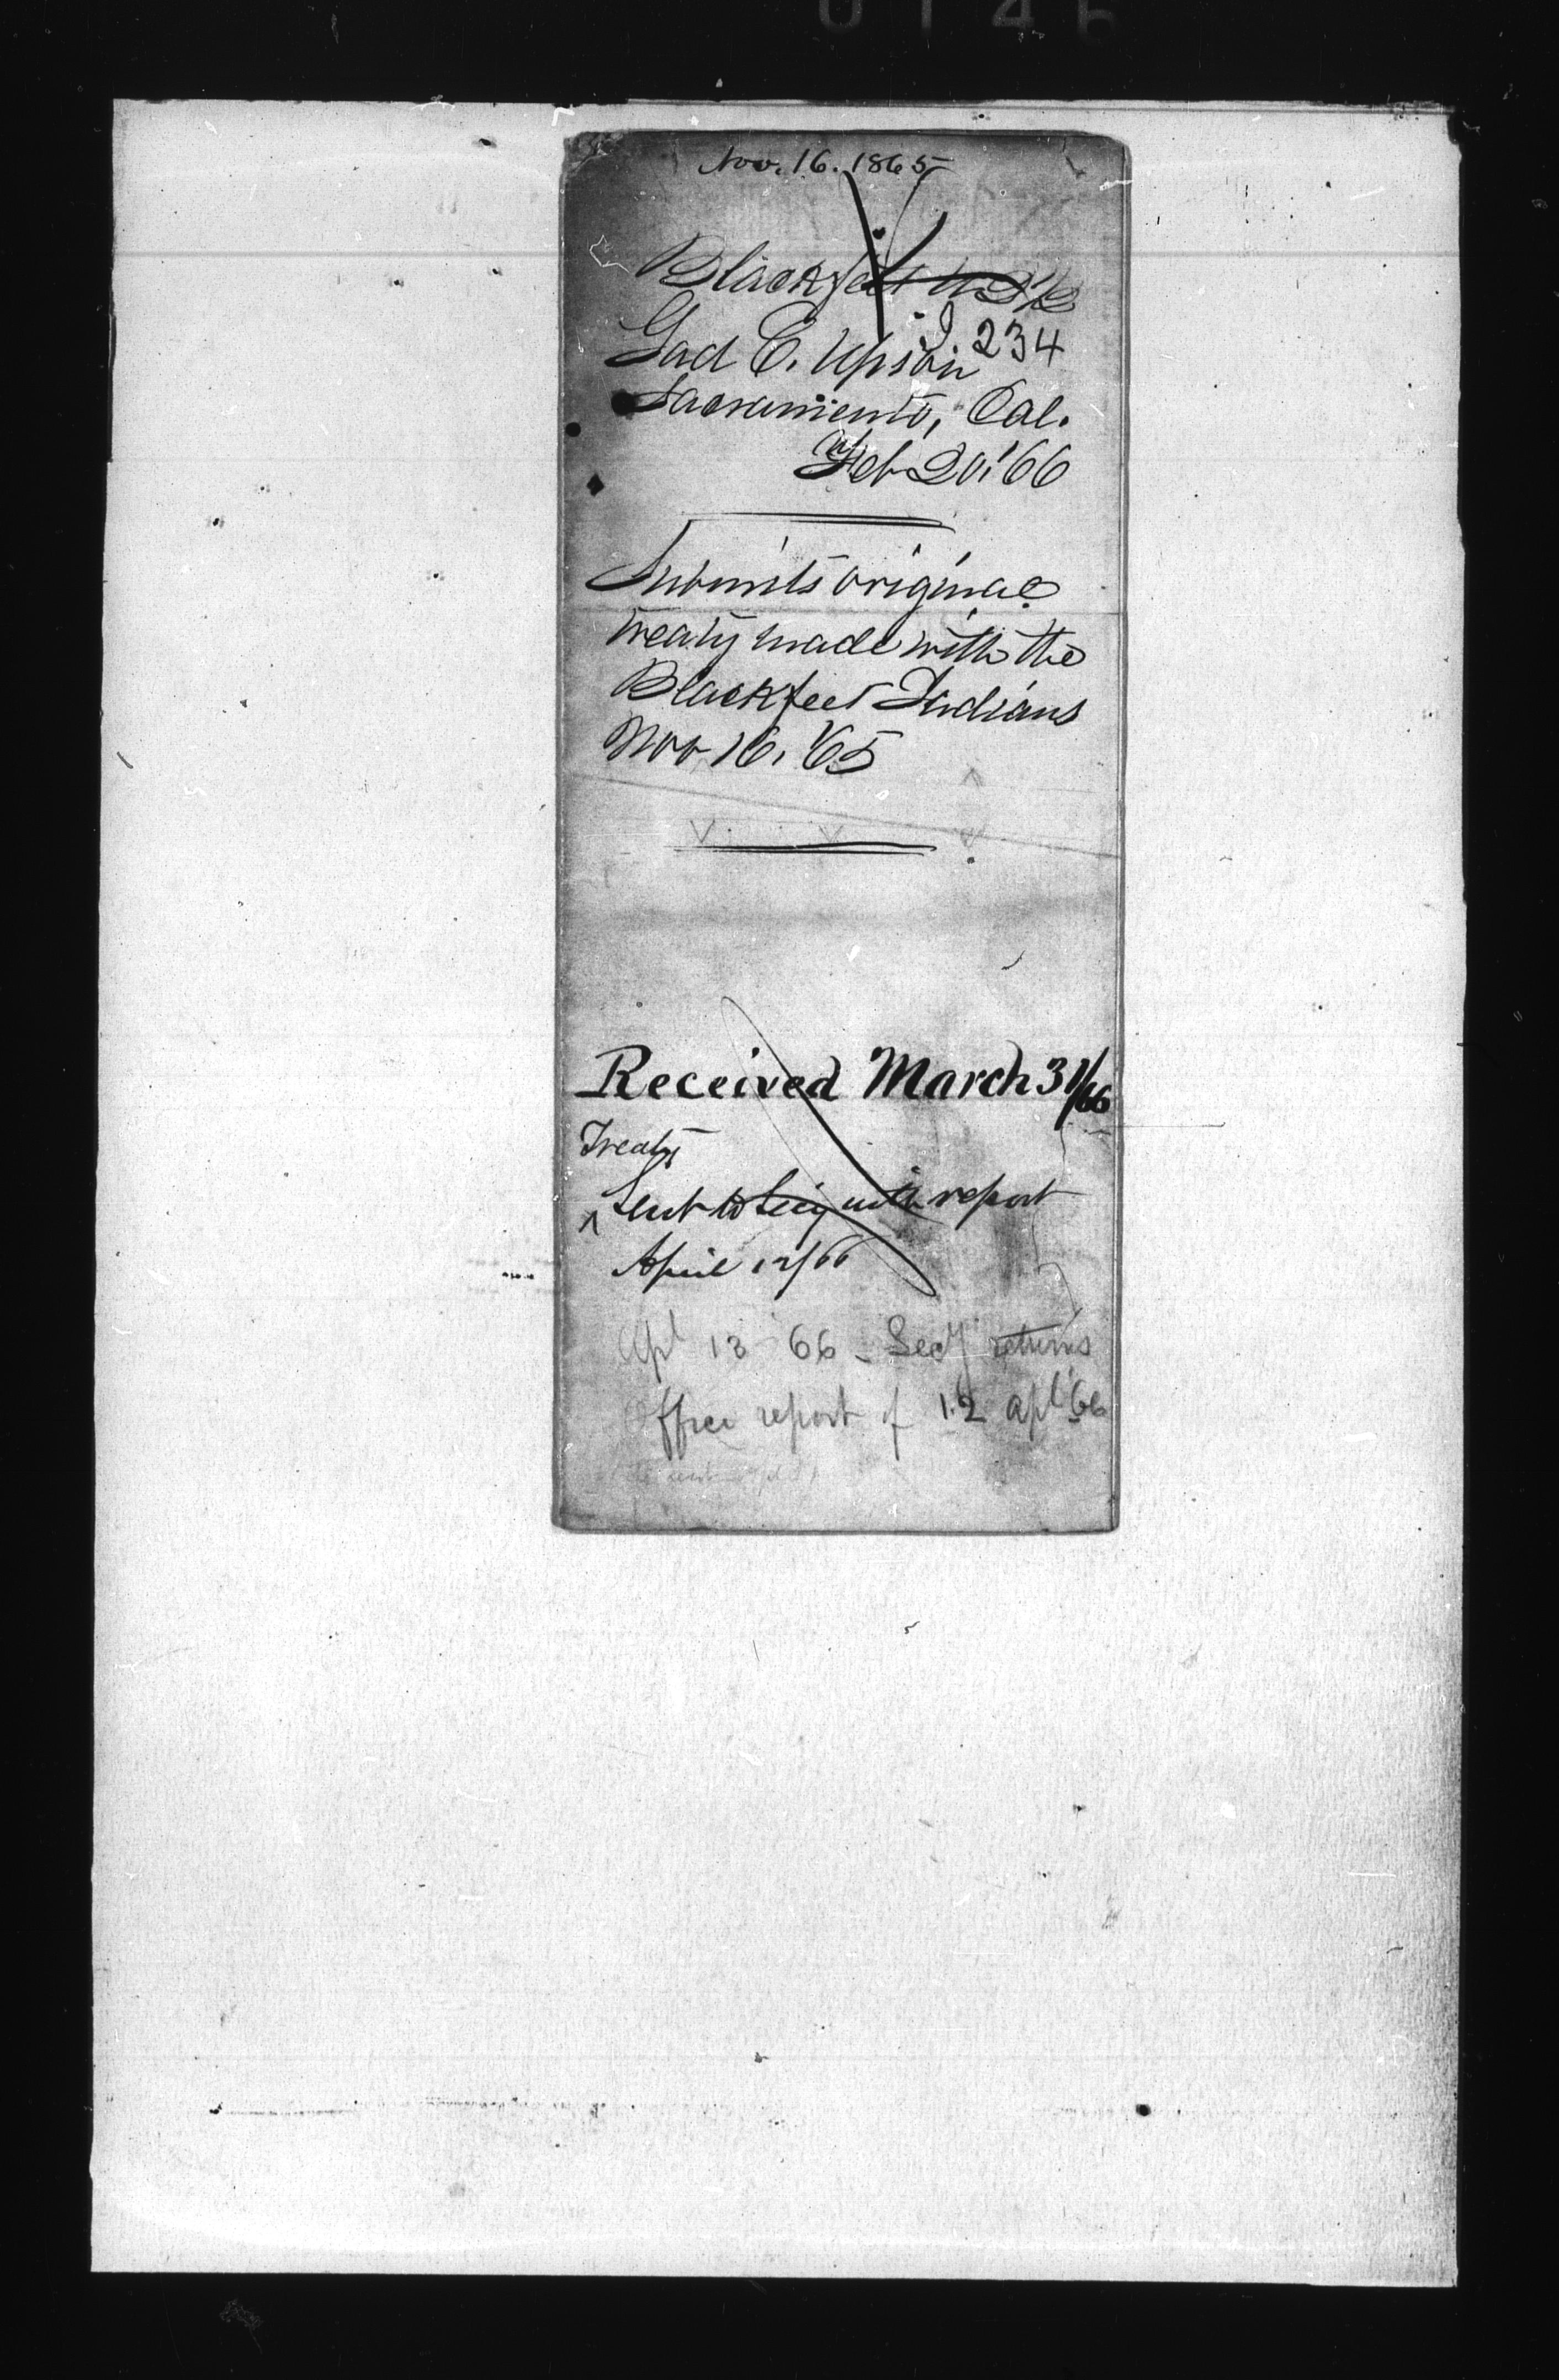 Nov. 16. 1865
Blackfeet
I. 234
Gad E. Upson
Sacramento, Cal.
Feb 20, '66
Submits original
treaty made with the
Blackfeet Indians
Nov 16, '65
Received March 31/66
Treaty
^ Sent to Secy with report
April 12/66
Apl 13 66 - Secy returns
Office report of 12 apl '66